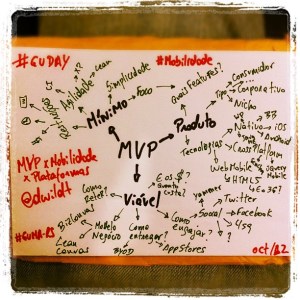 #GUDAY
#Mobilidade
Lean
Agilidade
Simplicidade
Foco
Mínimo
Quais Features?
Consumidor
Tipo
Corporativo
Nicho
Produto
MVP
MVP x Mobilidade
x Plataformas
@dwildt
Tecnologias
Nativo
iOS
Android
BB
WP
Cross Platform
Web Mobile
HTML5
Jquery
Mobile
Viável
E o $?
Quanto
Custa?
Como
Reter?
Modelo
Negócio
BizCanvas
Lean
Canvas
Como
entregar?
BYOD
AppStores
Como
engajar?
Social
Yammer
Twitter
Facebook
4sq
E o 3G?
#GUMA-RS
oct/12